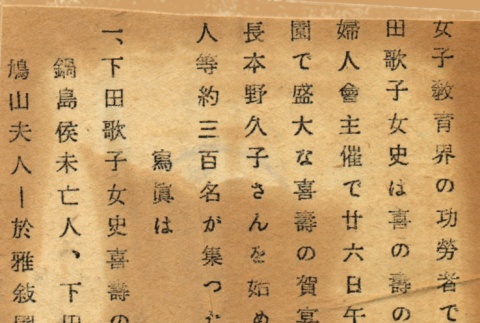 女子教育界の功勞者で
田歌子女史は喜の壽の
婦人會主催で廿六日午
園で盛大な喜壽の賀宴
長本野久子さんを始め
人等約三百名が集つた
寫眞は
一、下田歌子女史喜壽の
鍋島侯未亡人、下田
鳩山夫人ー於雅敍園